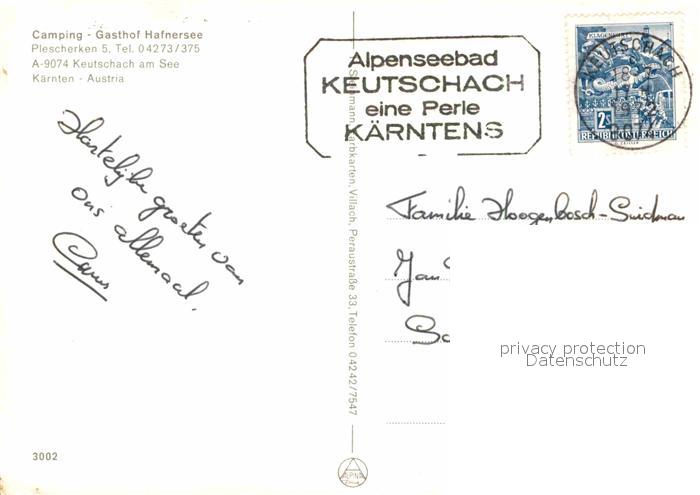 Camping - Gasthof Hafnersee
Plescherken 5, Tel. 04273/375
A-9074 Keutschach am See
Kärnten - Austria
Hartelijke groeten van
ons allemaal.
3002
Farbkarten, Villach, Peraustraße 33, Telefon 04242/7547
ALPINA
Alpenseebad
KEUTSCHACH
eine Perle
KÄRNTENS
KEUTSCHACH
2S
REPUBLIK ÖSTERREICH
Familie Hoogenbosch-Snidman
Jan
privacy protection
Datenschutz